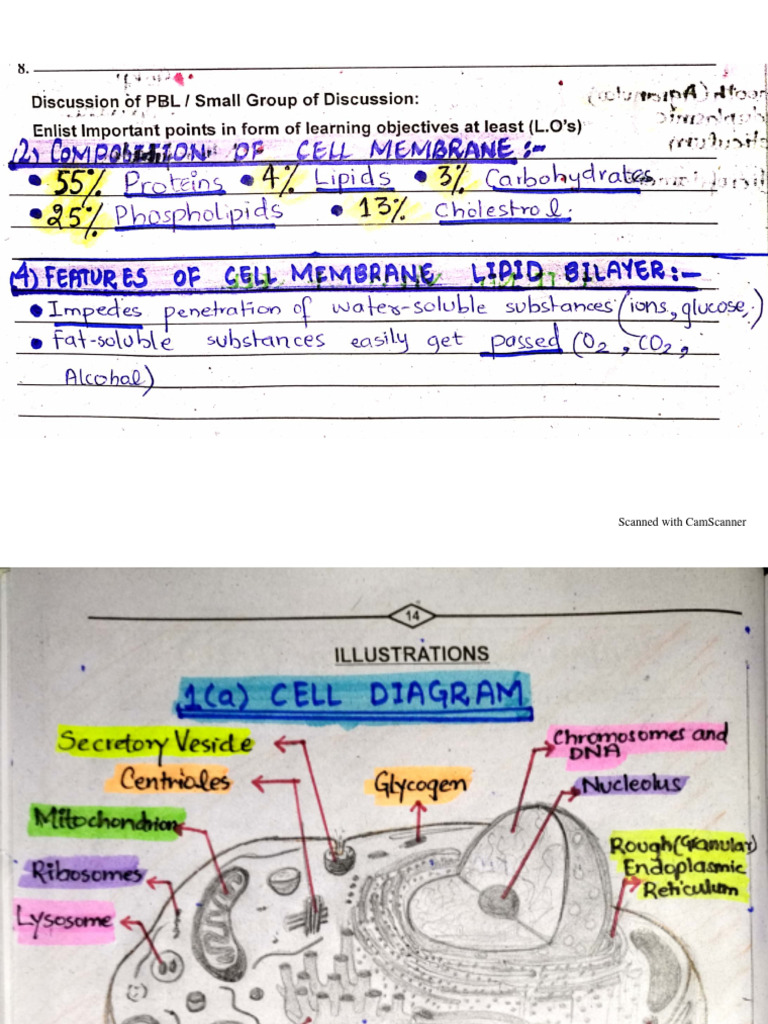 8.
Discussion of PBL / Small Group of Discussion:
Enlist Important points in form of learning objectives at least (L.O's)
(2) COMPOSITION OF CELL MEMBRANE :-
• 55% Proteins • 4% Lipids • 3% Carbohydrates
• 25% Phospholipids • 13% Cholestrol.
(4) FEATURES OF CELL MEMBRANE LIPID BILAYER:-
• Impedes penetration of water-soluble substances (ions, glucose,.)
• Fat-soluble substances easily get passed (O2, CO2,
Alcohal)
Scanned with CamScanner
14
ILLUSTRATIONS
1(a) CELL DIAGRAM
Secretory Vesicle
Chromosomes and
DNA
Centrioles
Glycogen
Nucleolus
Mitochondrion
Rough (Granular)
Endoplasmic
Reticulum
Ribosomes
Lysosome